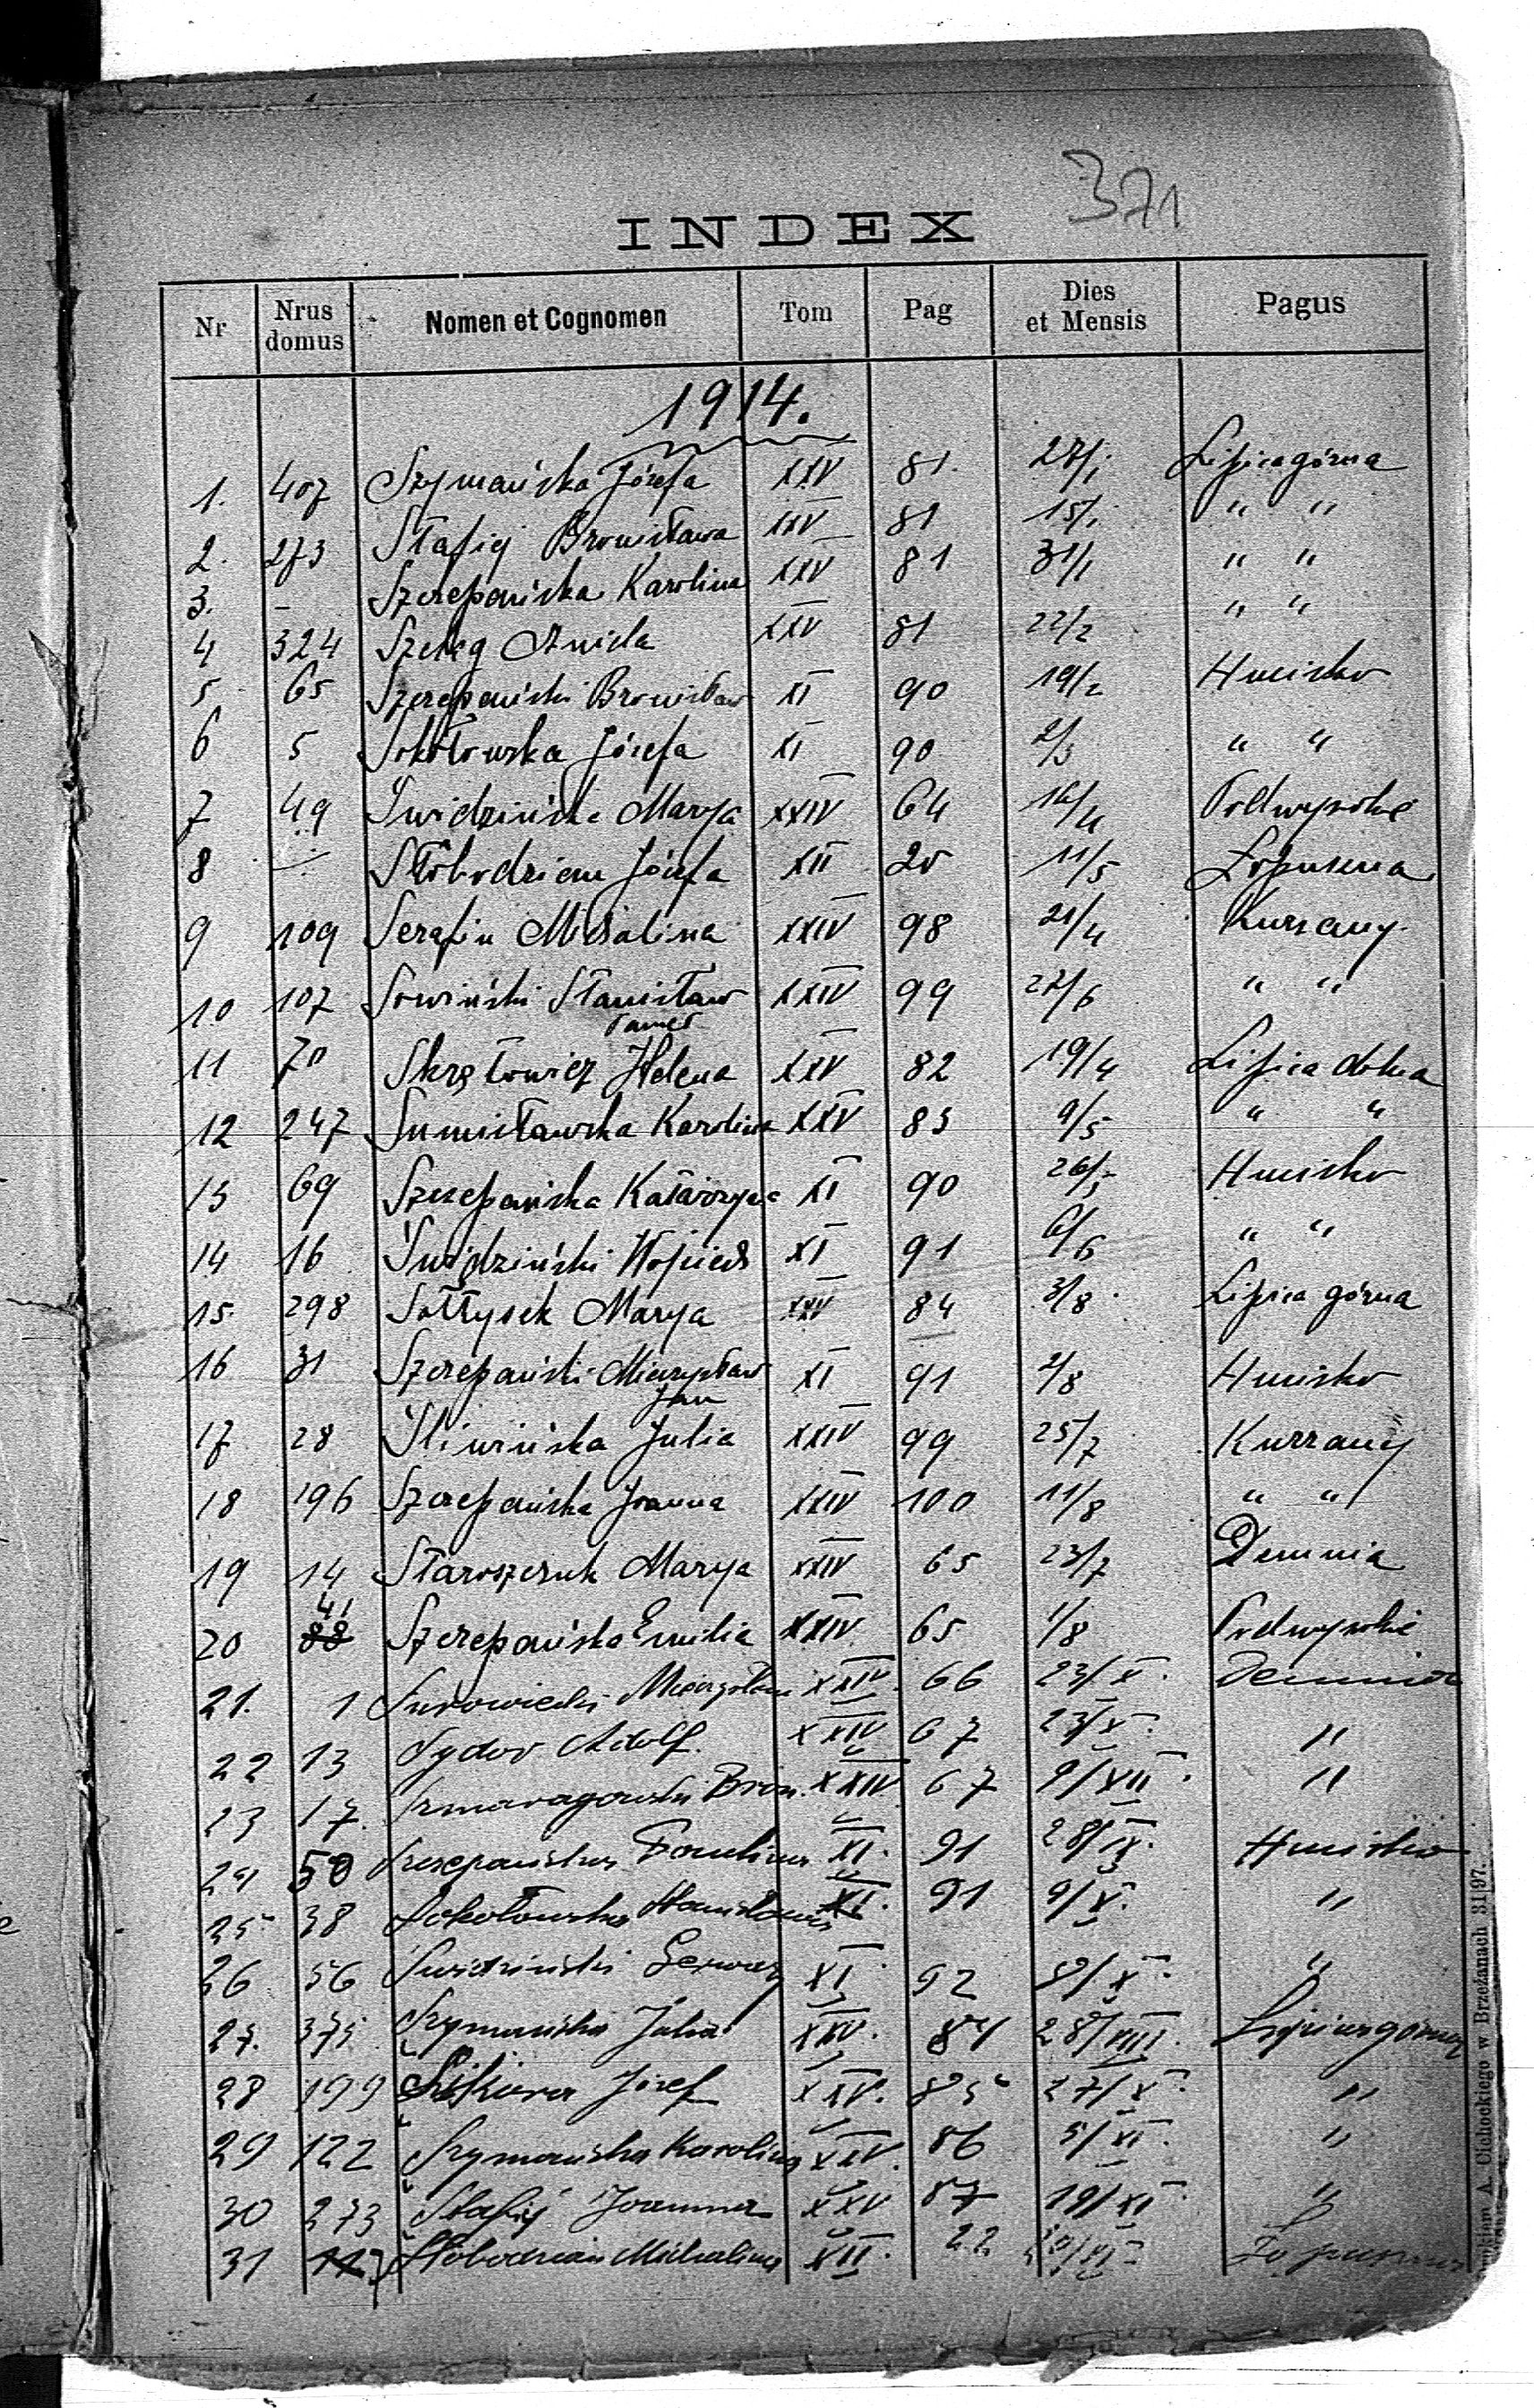 371
INDEX
Nr Nrus domus Nomen et Cognomen Tom Pag Dies et Mensis Pagus
1914.
1. 407 Szymańska Józefa XXV 81. 27/1 Lipica górna
2. 273 Stafiej Bronisława XXV 81 15/1 " "
3. - Szczepańska Karolina XXV 81 31/1 " "
4 324 Szeleg Aniela XXV 81 22/2 " "
5 65 Szczepański Bronisław XI 90 19/2 Hucisko
6 5 Sokołowska Józefa XI 90 2/3 " "
7 49 Świdzińska Marya XXIV 64 16/4 Podwysokie
8 - Słobodzian Józefa XII 20 11/5 Łopuszna
9 109 Serafin Michalina XXIV 98 21/4 Kurzany
10 107 Sowiński Stanisław XXIV 99 27/6 " "
Paweł
11 70 Skrętowicz Helena XXV 82 19/4 Lipica dolna
12 247 Sumisławska Karolina XXV 83 9/5 " "
13 69 Szczepańska Katarzyna XI 90 26/5 Hucisko
14 16 Świdziński Wojciech XI 91 6/6 " "
15. 298 Sołtysek Marya XXV 84 3/8 Lipica górna
16 31 Szczepański Mieczysław XI 91 2/8 Hucisko
Jan
17 28 Śliwińska Julia XXIV 99 25/7 Kurzany
18 196 Szczepańska Joanna XXIV 100 11/8 " "
19 14 Staroszczuk Marya XXIV 65 23/7 Demnia
41
20 88 Szczepańska Emilia XXIV 65 1/8 Podwysokie
21. 1 Surowiecki Mieczysław XXIV. 66 23/X. Demnia
22 13 Sydor Adolf. XXIV 67 23/X. "
23 17. Szmaragowski Bron. XXIV 67 9/XII. "
24 50 Szczepańska Paulina XI. 91 28/IX. Hucisko
25 38 Sokołowska Stanisława XI. 91 9/X. "
26 56 Świdziński Gerwazy XI 92 9/X. "
27. 375 Szymańska Julia XXV. 84 28/VIII. Lipica górna
28 199 Józef XXV. 85 27/X. "
29 122 Szymańska Karolina XXV. 86 5/XI. "
30 273 Stafiej Joanna XXV 87 19/XI "
31 117 Słobodzian Michalina XII. 22 /XI Łopuszna
A. Cichockiego w Brzeżanach 31|97.